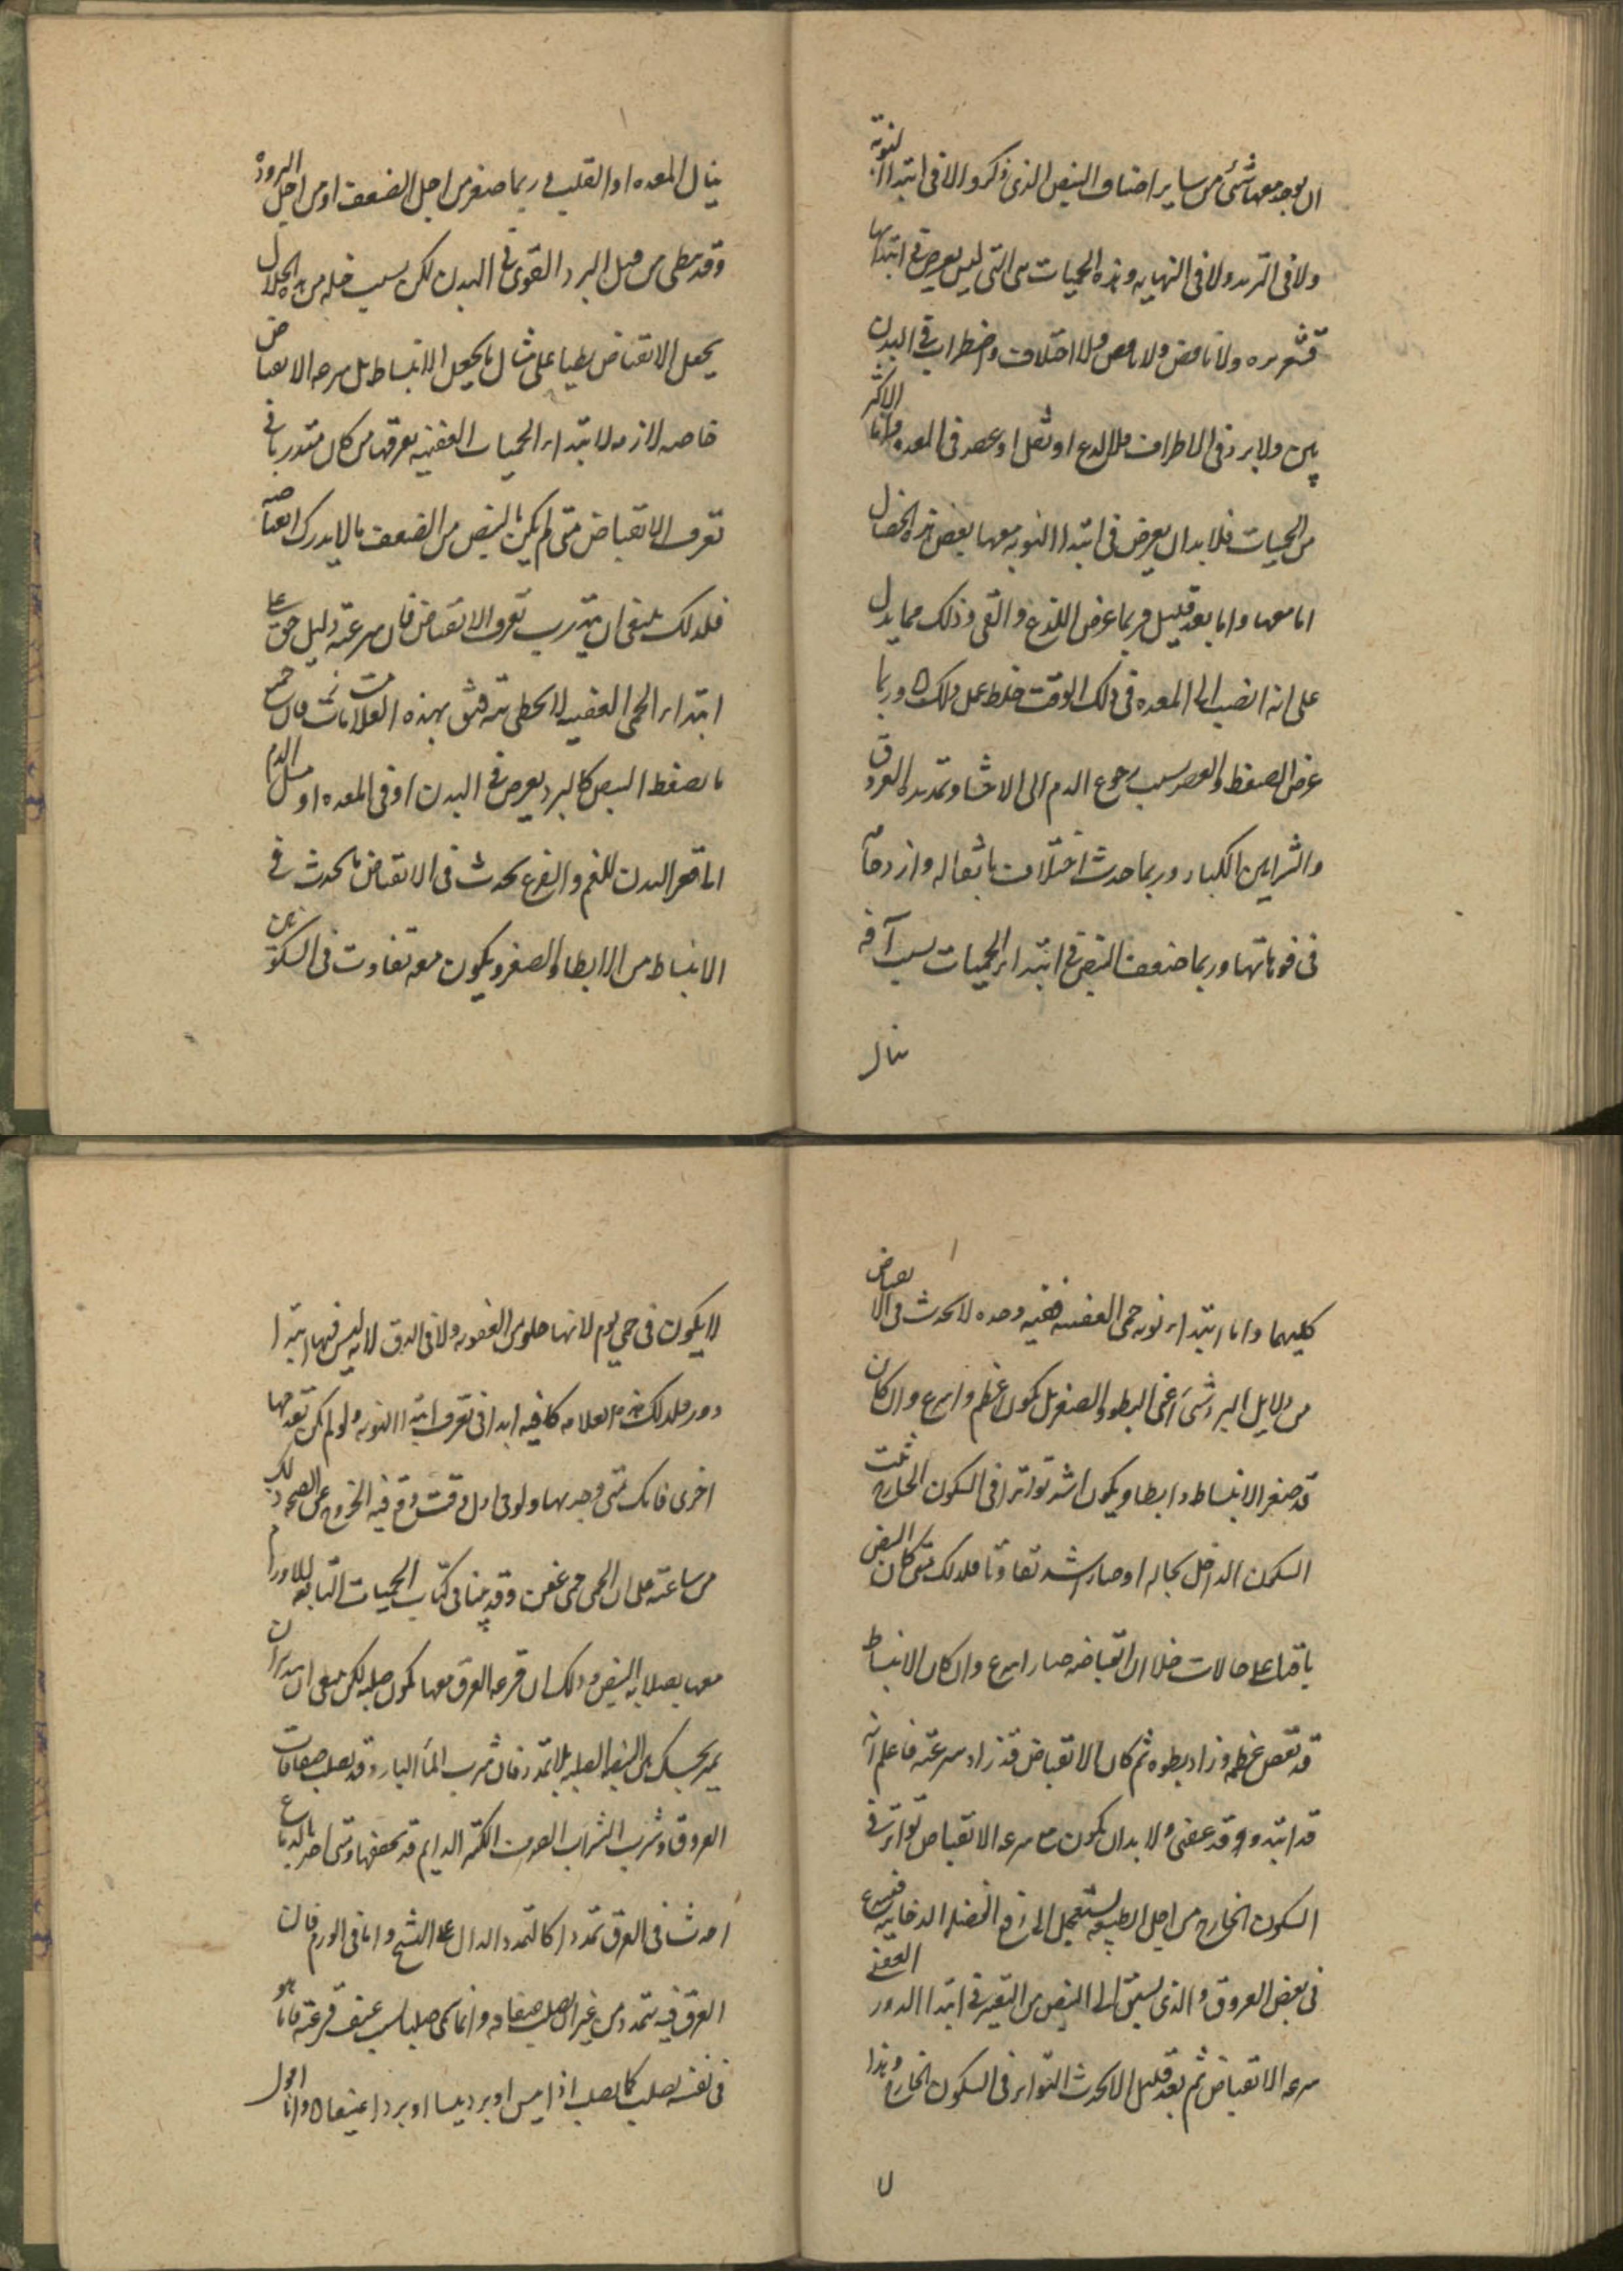 ان يوجد معها شئ من ساير اصناف النبض الذى ذكروا لا فى ابتدا النوبة
ولا فى التزيد ولا فى النهايه وهذه الحميات هى التى ليس يعرض فى ابتدائها
قشعريره ولا نافض ولا اختلاف واضطراب فى البدن
بين ولا برد فى الاطراف ولا لذع او ثقل او عصر فى المعده واما الاكثر
من الحميات فلا بد ان يعرض فى ابتدا النوبه معها بعض هذه الخصال
اما معها واما بعد قليل وربما عرض اللذع والقى وذلك مما يدل
على انه انصب الى المعده فى ذلك الوقت خلط عمل ذلك ٥ وربما
عرض الضغط والعصر بسبب رجوع الدم الى الاحشا وتمديده العروق
والشرايين الكبار وربما حدث اختلاف باثقاله وازدحامه
فى فوهاتها وربما ضعف النبض فى ابتداء الحميات بسبب آفه
ينال
ينال المعده او القلب وربما صغر من اجل الضعف او من اجل البروده
وقد يبطى من قبل البرد القوى فى البدن لكن ليس بسبب خله من هذه الخلال
يجعل الانقباض بطيا على مثال ما يجعل الانبساط بل سرعه الانقباض
خاصه لازمه لابتداء الحميات العفنيه يعرفها من كان متدربا فى
تعرف الانقباض متى لم يكن بالنبض من الضعف ما لا يدرك انقباضه
فلذلك ينبغى ان يتدرب بتعرف الانقباض فان سرعته دليل حق على
ابتداء الحمى العفنيه لا يخطى ثم فثق بهذه العلامات فان جميع
ما يضغط النبض كالبرد يعرض فى البدن او فى المعده او ميل الدم
الى قعر البدن للغم والفزع يحدث فى الانقباض ما يحدث فى
الانبساط من الابطا والصغر ويكون معه تفاوت فى السكونين
كليهما واما ابتداء نوبه حمى العفنيه ففيه وحده لا يحدث فى الانقباض
من دلايل البرد شئ اعنى البطو والصغر بل يكون اعظم واسرع وان كان
قد صغر الانبساط وابطا ويكون اشد تواترا فى السكون الخارج ثبت
السكون الداخل بحاله او صار اشد تفاوتا فلذلك متى كان النبض
باقيا على حالات خلا ان انقباضه صار اسرع وان كان الانبساط
قد نقص عظمه وزاد بطوه ثم كان الانقباض قد زاد سرعته فاعلم انه
قد ابتدا وقد عفن ولا بد ان يكون مع سرعه الانقباض تواتر فى
السكون الخارج من اجل الطبيعه يستعجل الى دفع الفضله الدخانيه
فى بعض العروق والذى يسبق الى النبض من التغير فى ابتدا الدور
سرعه الانقباض ثم بعد قليل الا يحدث التواتر فى السكون الخارج وهذا
لا
لا يكون فى حمى يوم لانها خلو من العفونه ولا فى الدق لانه ليس فيها ابتدا
دور فلذلك هذه العلامه كافيه ابدا فى تعرف ابتدا النوبه ولو لم يكن تقدمها
اخرى فانك متى وجدتها ولو فى اول وقت وقع فيه الخروج عن الصحه دلتك
من ساعته على ان الحمى حمى عفن وقد بينا فى كتاب الحميات التابعه للاورام
معها بصلابه النبض وذلك ان قرعه العرق معها يكون صلبه لكن ينبغى ان
يميز بحسك بين النبضه الصلبه بلا تمدد فان شرب الما البارد قد يصلب صفاقات
العروق وشرب الشراب الصرف الكثير الدايم قد يجففها ومتى اضر بالدماغ
احدث فى العرق تمددا كالتمدد الدال على التشنج واما فى الورم فان
العرق فيه يتمدد من غير ان يصلب صفاقه وانما يسمى صلبا بسبب عنف قرعته فاما هو
فى نفسه يصلب كما يصلب اذا يبس او برد يبسا او بردا عنيفا ٥ واما اقول